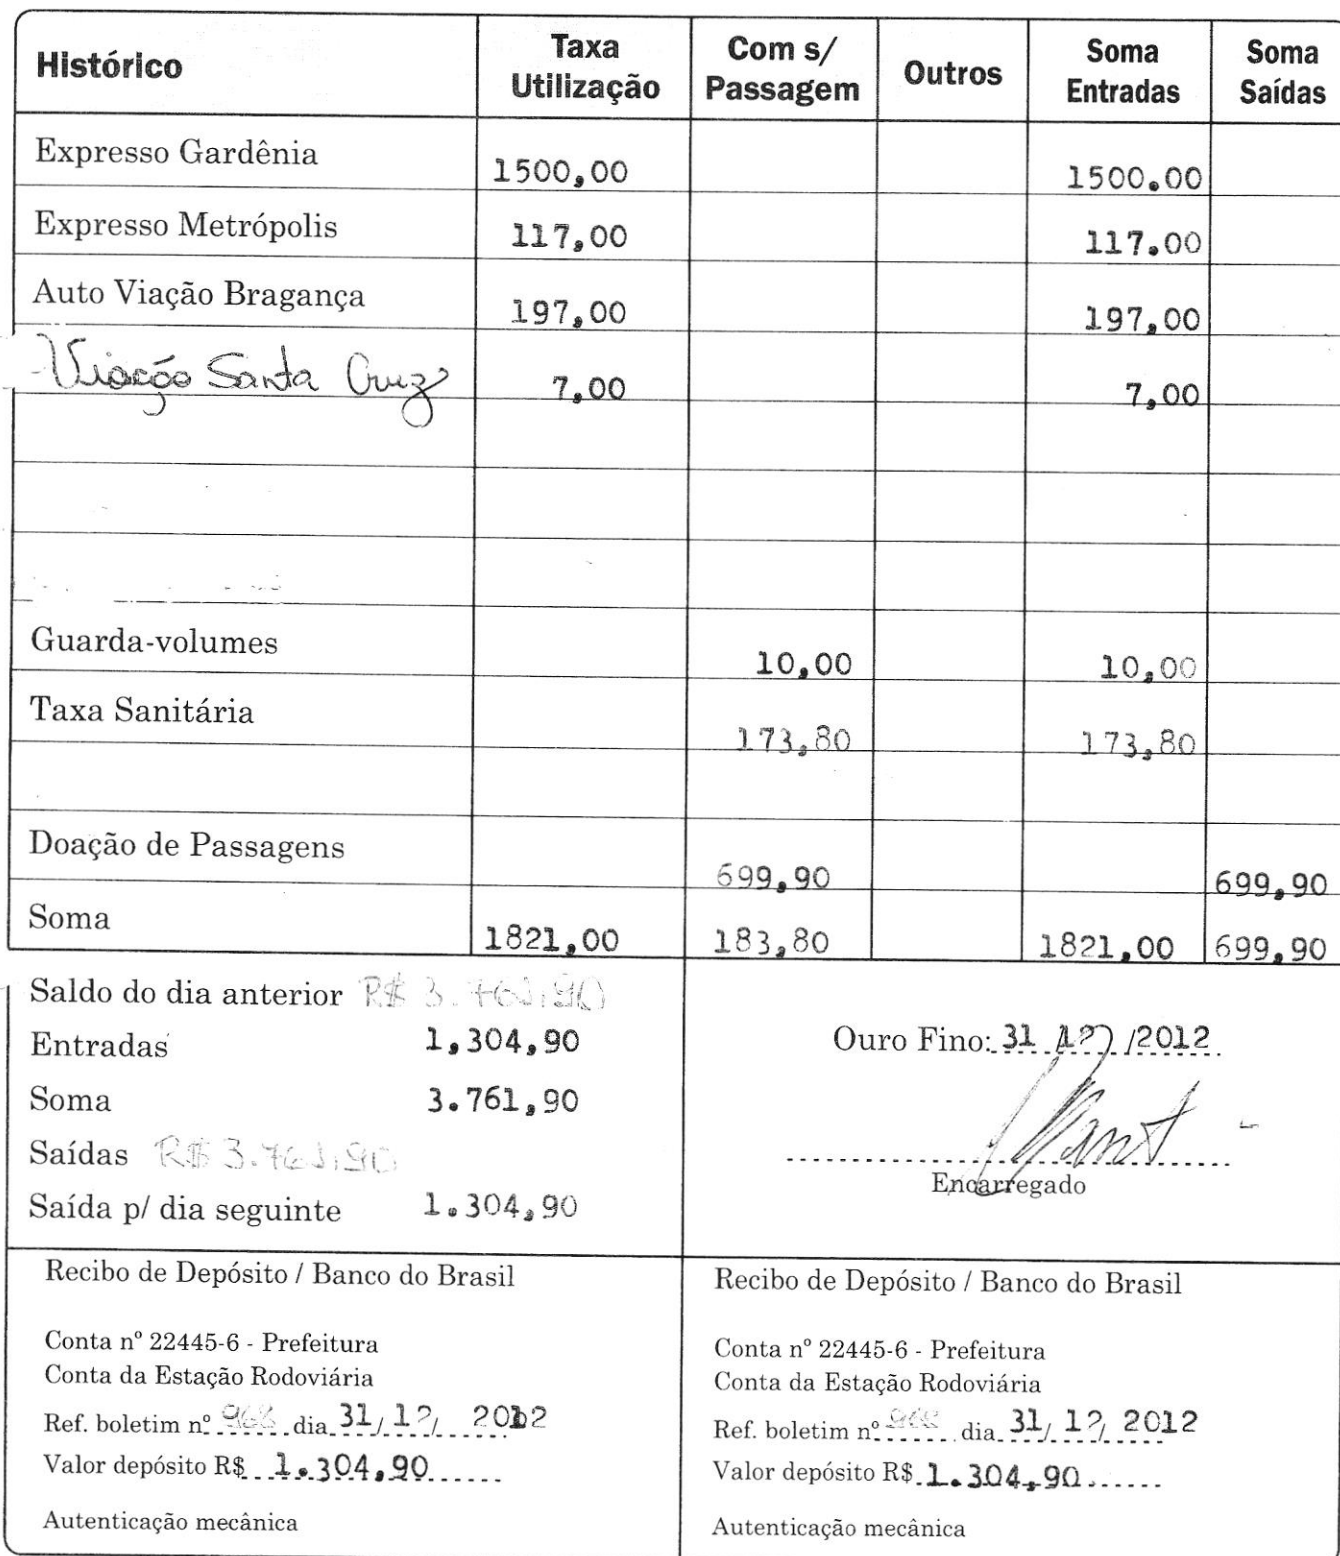 Histórico Taxa Utilização Com s/ Passagem Outros Soma Entradas Soma Saídas
Expresso Gardênia 1500,00 1500.00
Expresso Metrópolis 117,00 117.00
Auto Viação Bragança 197,00 197,00
Viação Santa Cruz 7,00 7,00
Guarda-volumes 10,00 10,00
Taxa Sanitária 173,80 173,80
Doação de Passagens 699,90 699,90
Soma 1821,00 183,80 1821,00 699,90
Saldo do dia anterior R$ 3.761,90
Entradas 1,304,90
Soma 3.761,90
Saídas R$ 3.761,90
Saída p/ dia seguinte 1.304,90
Ouro Fino: 31 12 /2012
Encarregado
Recibo de Depósito / Banco do Brasil
Conta nº 22445-6 - Prefeitura
Conta da Estação Rodoviária
Ref. boletim nº dia 31/12/ 2012
Valor depósito R$ 1.304,90
Autenticação mecânica
Recibo de Depósito / Banco do Brasil
Conta nº 22445-6 - Prefeitura
Conta da Estação Rodoviária
Ref. boletim nº dia 31/ 12/ 2012
Valor depósito R$ 1.304,90
Autenticação mecânica